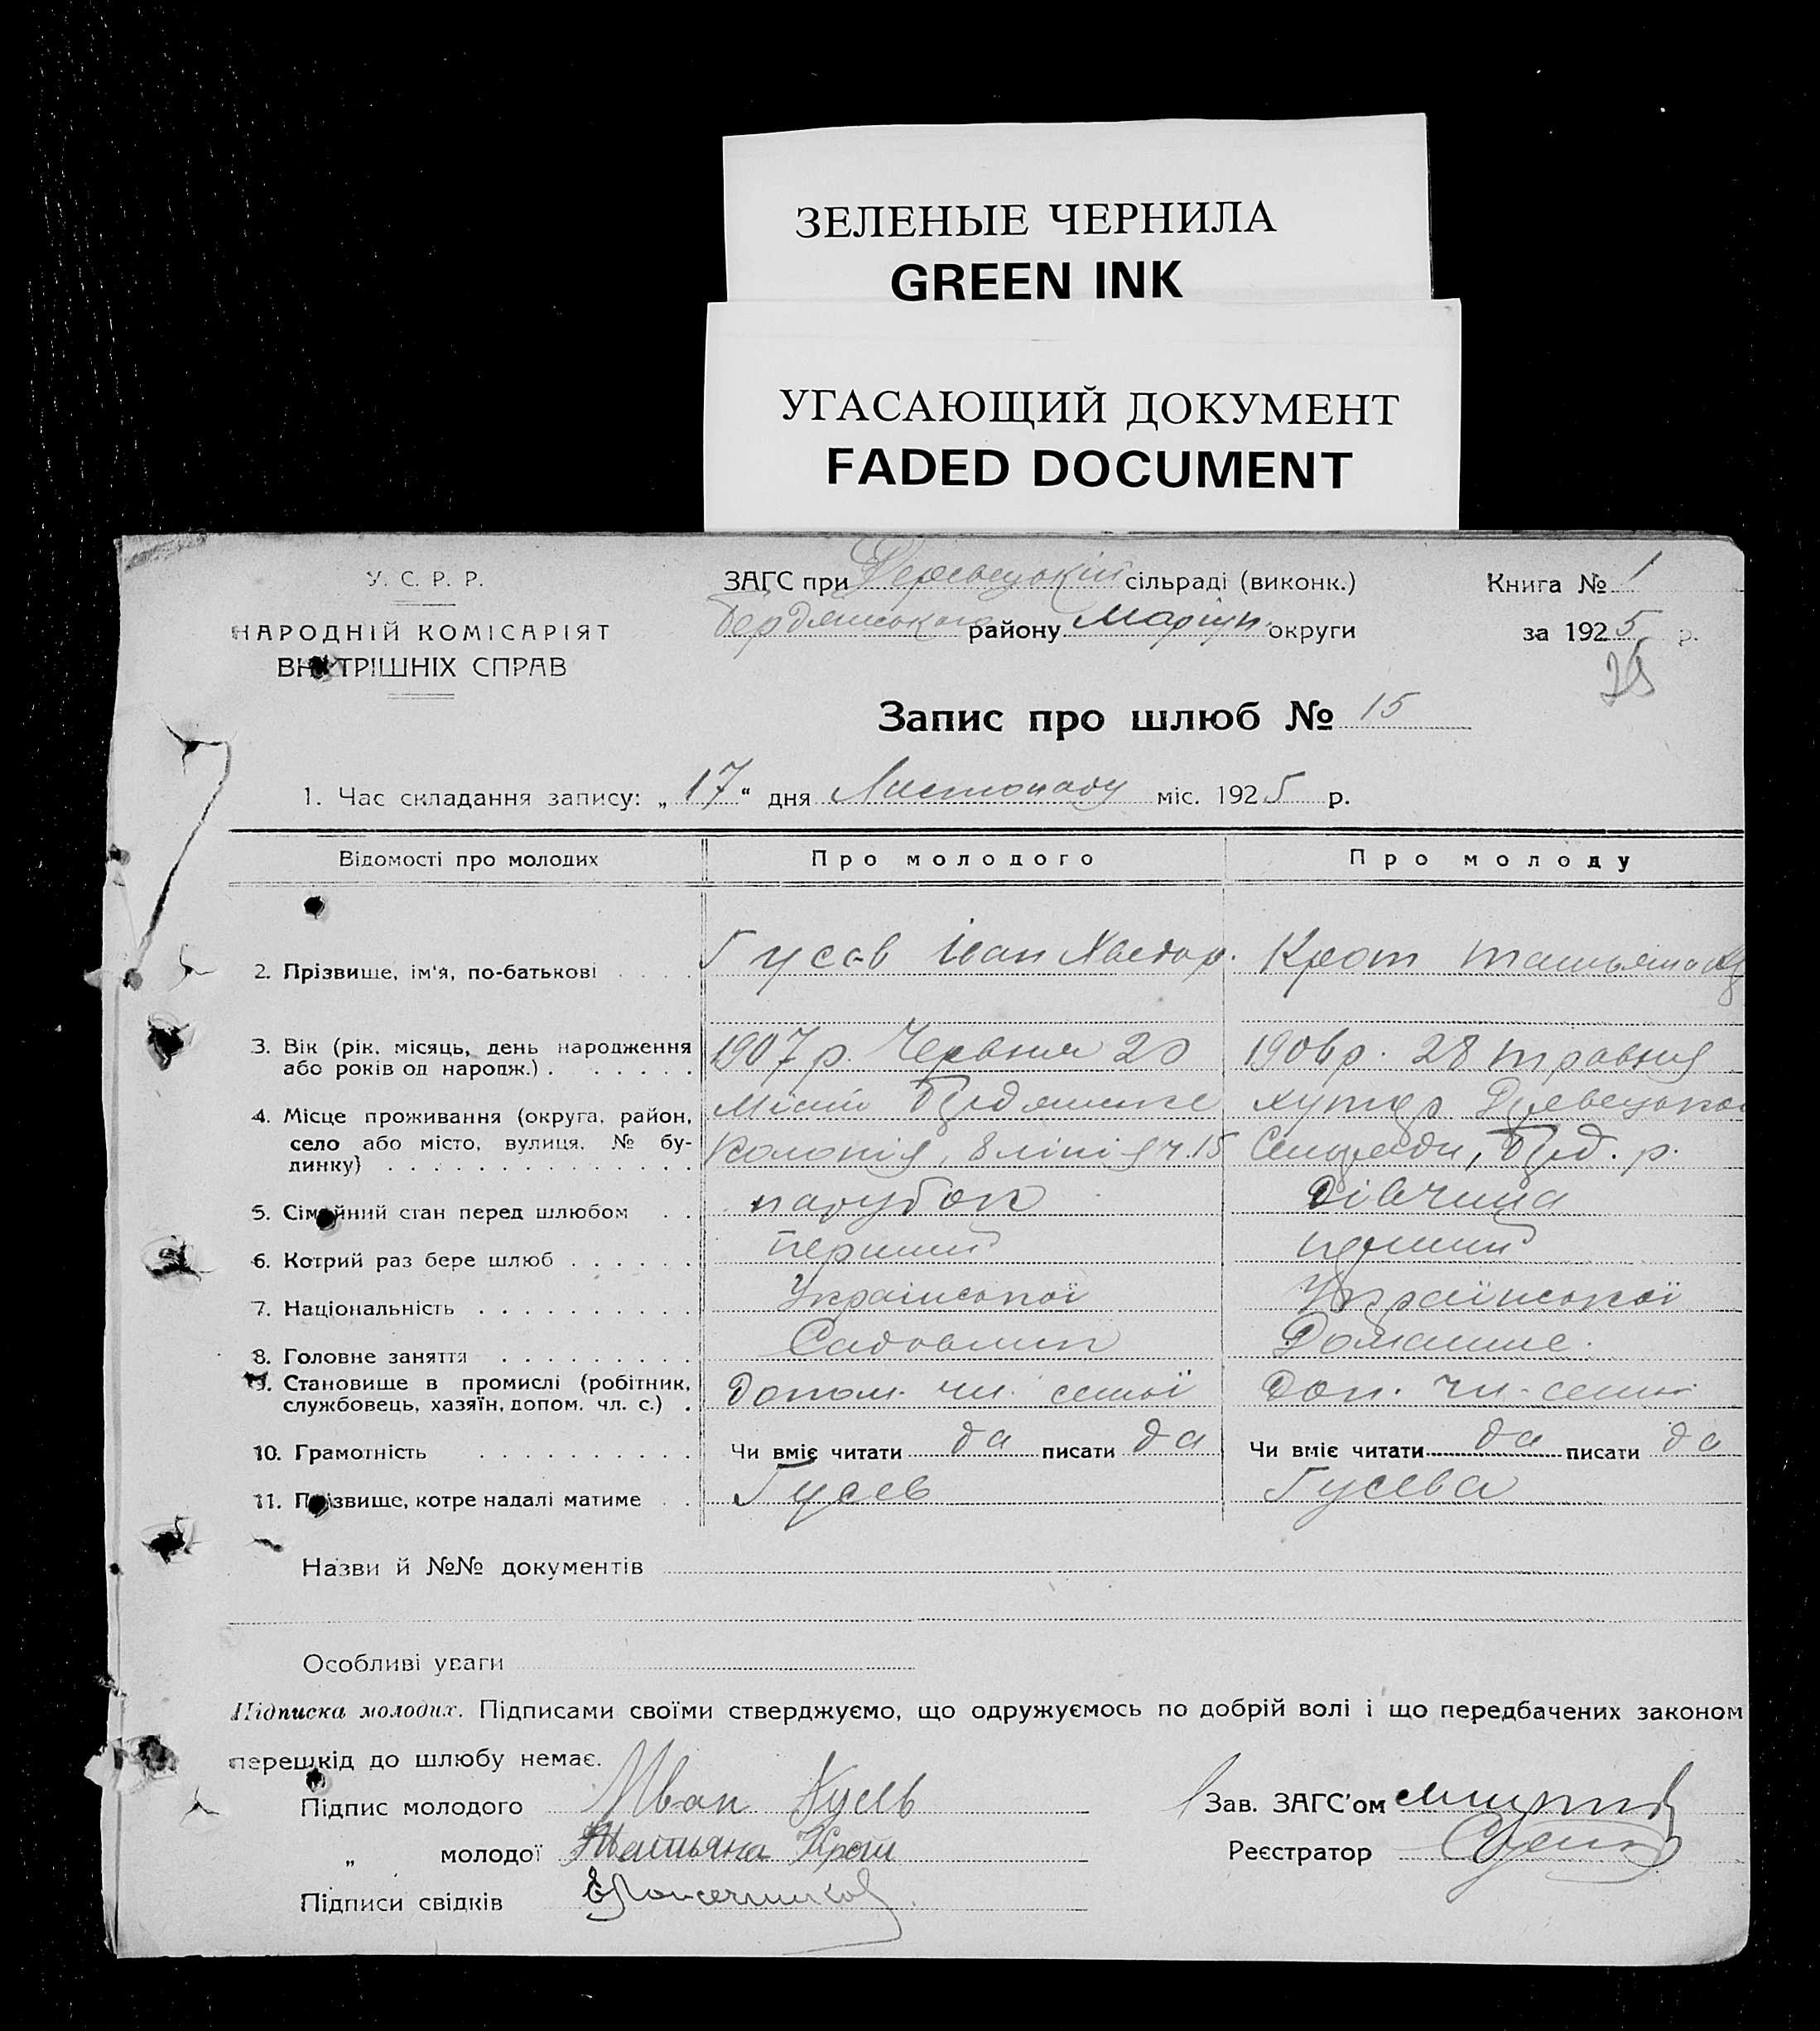 ЗЕЛЕНЫЕ ЧЕРНИЛА
GREEN INK
УГАСАЮЩИЙ ДОКУМЕНТ
FADED DOCUMENT
У. С. Р. Р.
НАРОДНІЙ КОМІСАРІЯТ
ВНУТРІШНІХ СПРАВ
ЗАГС при сільраді (виконк.)
Бердянського району Маріуп. округи
Книга № 1
за 1925 р.
25
Запис про шлюб № 15
1. Час складання запису: „17" дня Листопаду міс. 1925 р.
Відомості про молодих Про молодого Про молоду
2. Прізвище, ім'я, по-батькові Гусєв Іван Хведор. Крот Татьяна
3. Вік (рік, місяць, день народження або років од народж.) 1907 р. Червня 20 1906 р. 28 травня
4. Місце проживання (округа, район, село або місто, вулиця, № будинку) Місто Бердянське Колонія, 8 лінія ч. 15 хутор Сельради, Берд. р.
5. Сімейний стан перед шлюбом парубок дівчина
6. Котрий раз бере шлюб перший перший
7. Національність Української Української
8. Головне заняття Садовник Домашнє.
9. Становище в промислі (робітник, службовець, хазяїн, допом. чл. с.) допом. чл. семьї Доп. чл. семьї
10. Грамотність Чи вміє читати да писати да Чи вміє читати да писати да
11. Прізвище, котре надалі матиме Гусєв Гусєва
Назви й №№ документів
Особливі уваги
Підписка молодих. Підписами своїми стверджуємо, що одружуємось по добрій волі і що передбачених законом
перешкід до шлюбу немає.
Підпис молодого Иван Гусев
Зав. ЗАГС'ом
„ молодої Татьяна Крот
Реєстратор
Підписи свідків